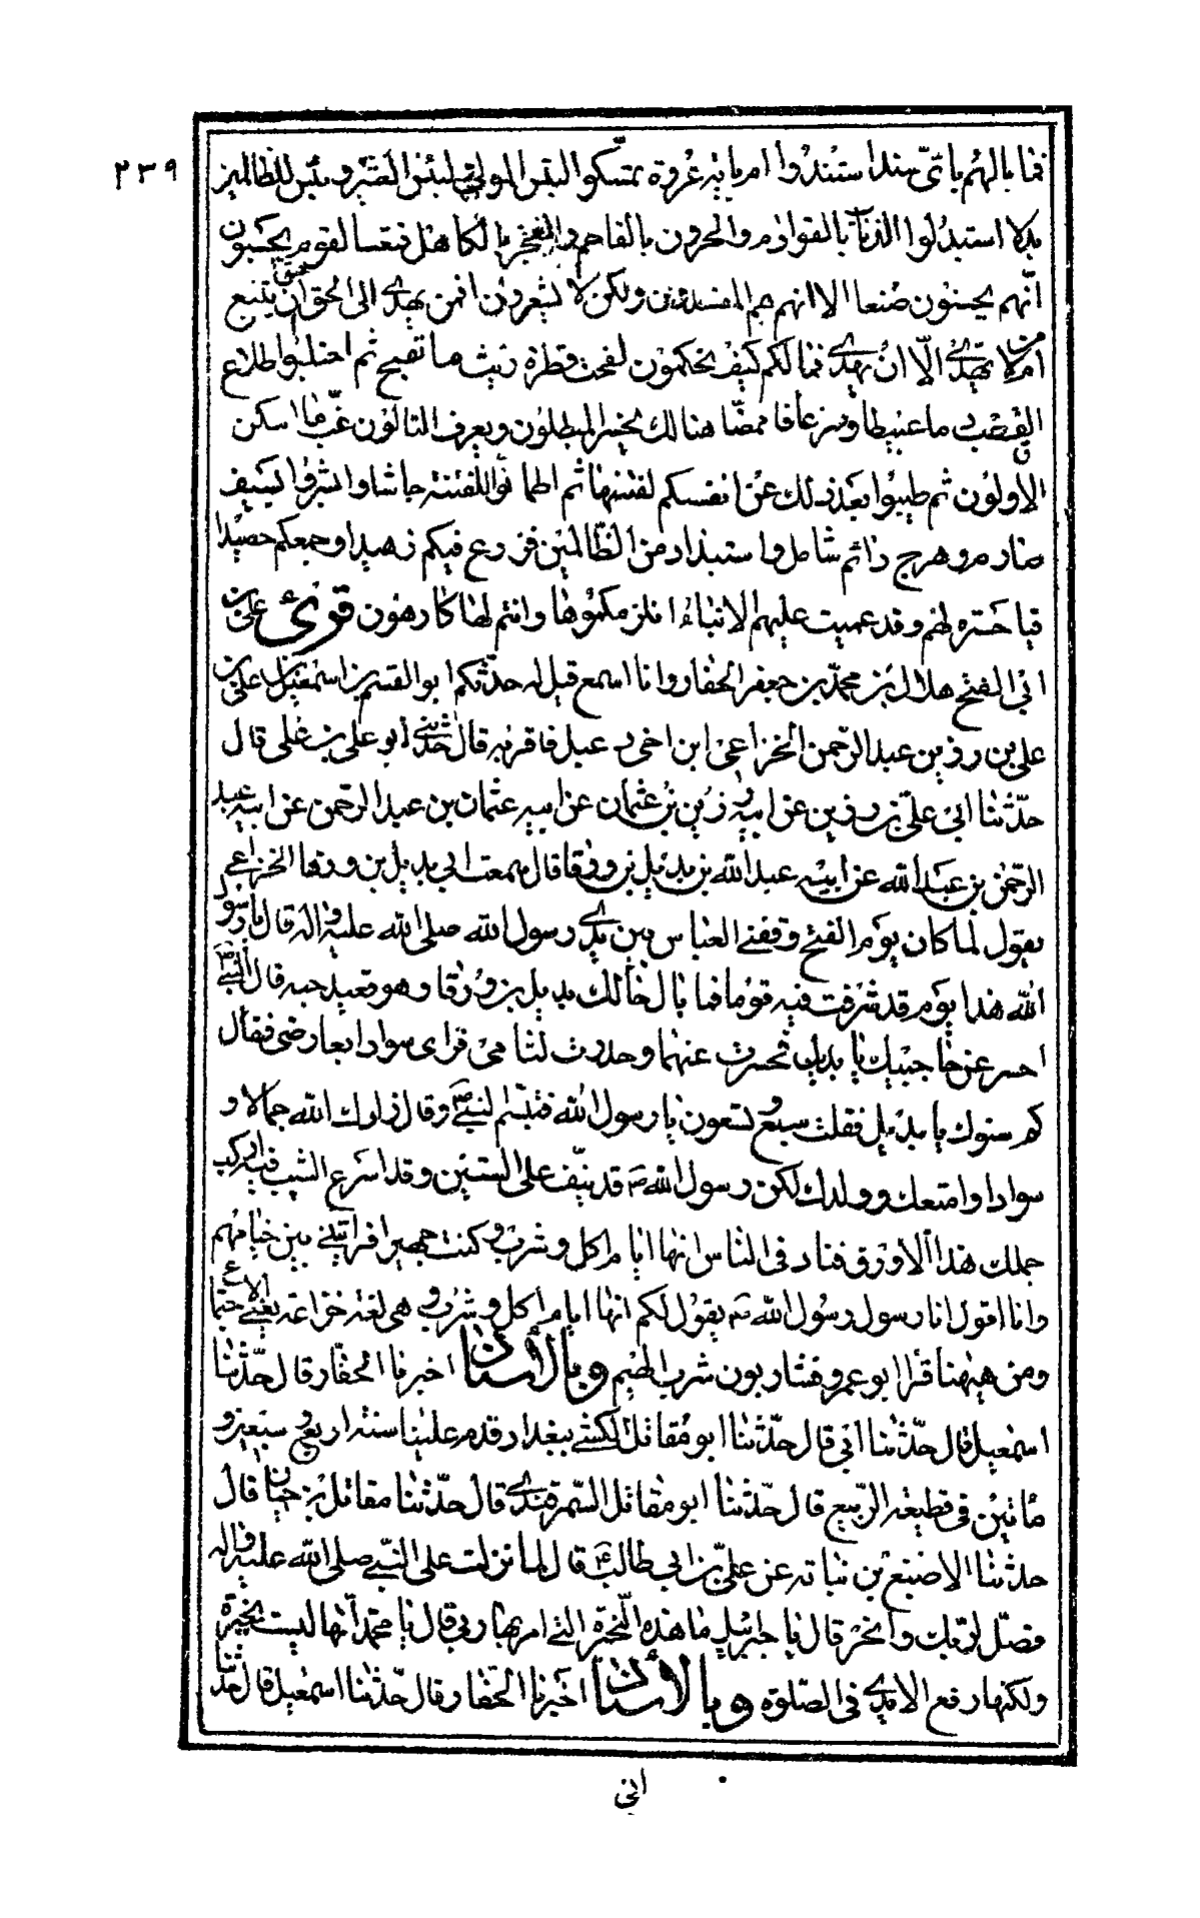 ٢٣٩
فما بالهم باتى سند استندوا ام باية عروة تمسكوا لبئس المولى و لبئس العشير و بئس للظالمين
بدلا استبدلوا الذنابا بالقوادم والحرون بالقاحم والعجز بالكاهل فتعسا لقوم يحسبون
انهم يحسنون صنعا الا انهم هم المفسدون ولكن لا يشعرون افمن يهدى الى الحق احق ان يتبع
امن لا يهدى الا ان يهدى فما لكم كيف تحكمون لقحت فنظرة ريث ما تنتج ثم احتلبوا طلاع
القعب دما عبيطا وذعافا ممضا هنالك يخسر المبطلون ويعرف التالون غب ما اسكن
الاولون ثم طيبوا بعد ذلك عن انفسكم لفتنتها ثم اطمانوا للفتنة جاشا وابشروا بسيف
صارم و هرج دائم شامل و استبداد من الظالمين فزرع فيكم زهيدا وجمعكم حصيدا
فيا حسرة لهم وقد عميت عليهم الانباء انلزمكموها وانتم لها كارهون قرئ على
ابى الفتح هلال بن محمد بن جعفر الحفار وانا اسمع قيل له حدثكم ابو القسم بن اسمعيل بن على بن
على بن رزين بن عبد الرحمن الخزاعى ابن اخى دعبل فاقربه قال حدثنى ابو على بن على قال
حدثنا ابى على بن رزين عن ابيه رزين بن عثمان عن ابيه عثمان بن عبد الرحمن عن ابيه عبد
الرحمن بن عبد الله عن ابيه عبد الله بن بديل بن ورقا قال سمعت ابى بديل بن ورقا الخزاعى
يقول لما كان يوم الفتح وقفنى العباس بين يدى رسول الله صلى الله عليه واله قال يا رسول
الله هذا يوم قد شرفت فيه قوما فما بال خالك بديل بن ورقا وهو قعيد حبه قال النبى ص
احسر عن حاجبيك يا بديل فحسرت عنهما وحدرت لثامى فراى سوادا بعارضى فقال
كم سنوك يا بديل فقلت سبع و تسعون يا رسول الله فتبسم النبى ص وقال زادك الله جمالا و
سوادا وامتعك وولدك لكن رسول الله ص قد نيف على الستين وقد اسرع الشيب فيه اركب
جملك هذا الاورق فناد فى الناس انها ايام اكل وشرب و كنت جهيرا فرايتنى بين خيامهم
وانا اقول انا رسول رسول الله ص يقول لكم انها ايام اكل وشرب و هى لغة خزاعة يعنى الاجتماع
ومن ههنا قرا ابو عمرو فشاربون شرب الهيم وبالاسناد اخبرنا الحفار قال حدثنا
اسمعيل قال حدثنا ابى قال حدثنا ابو مقاتل الكشى ببغداد قدم علينا سنة اربع و سبعين و
مأتين فى قطيعة الربيع قال حدثنا ابو مقاتل السمرقندى قال حدثنا مقاتل بن حيان قال
حدثنا الاصبغ بن نباته عن على بن ابى طالب ع قال لما نزلت على النبى صلى الله عليه واله
فصل لربك وانحر قال يا جبرئيل ما هذه النحيرة التى امر بها ربى قال يا محمد انها ليست نحيرة
ولكنها رفع الايدى فى الصلوة وبالاسناد اخبرنا الحفار قال حدثنا اسمعيل قال حدثنا
ابى